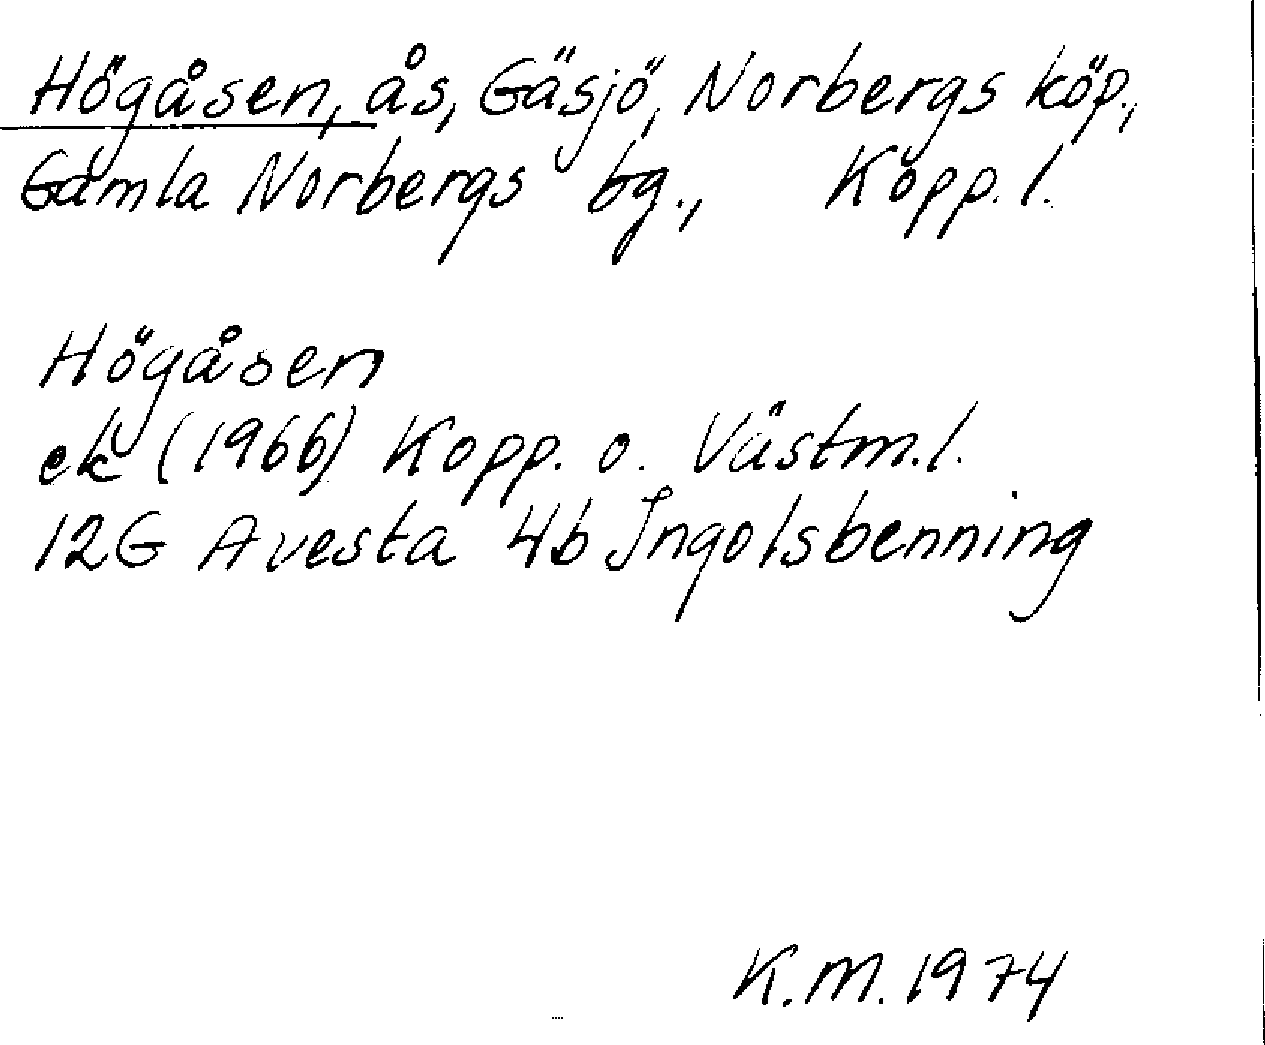 Högåsen, ås, Gäsjö, Norbergs köp.,
Gamla Norbergs bg., Kopp. l.
Högåsen
ek (1966) Kopp. o. Västm. l.
12G Avesta 4b Ingolsbenning
K.M. 1974